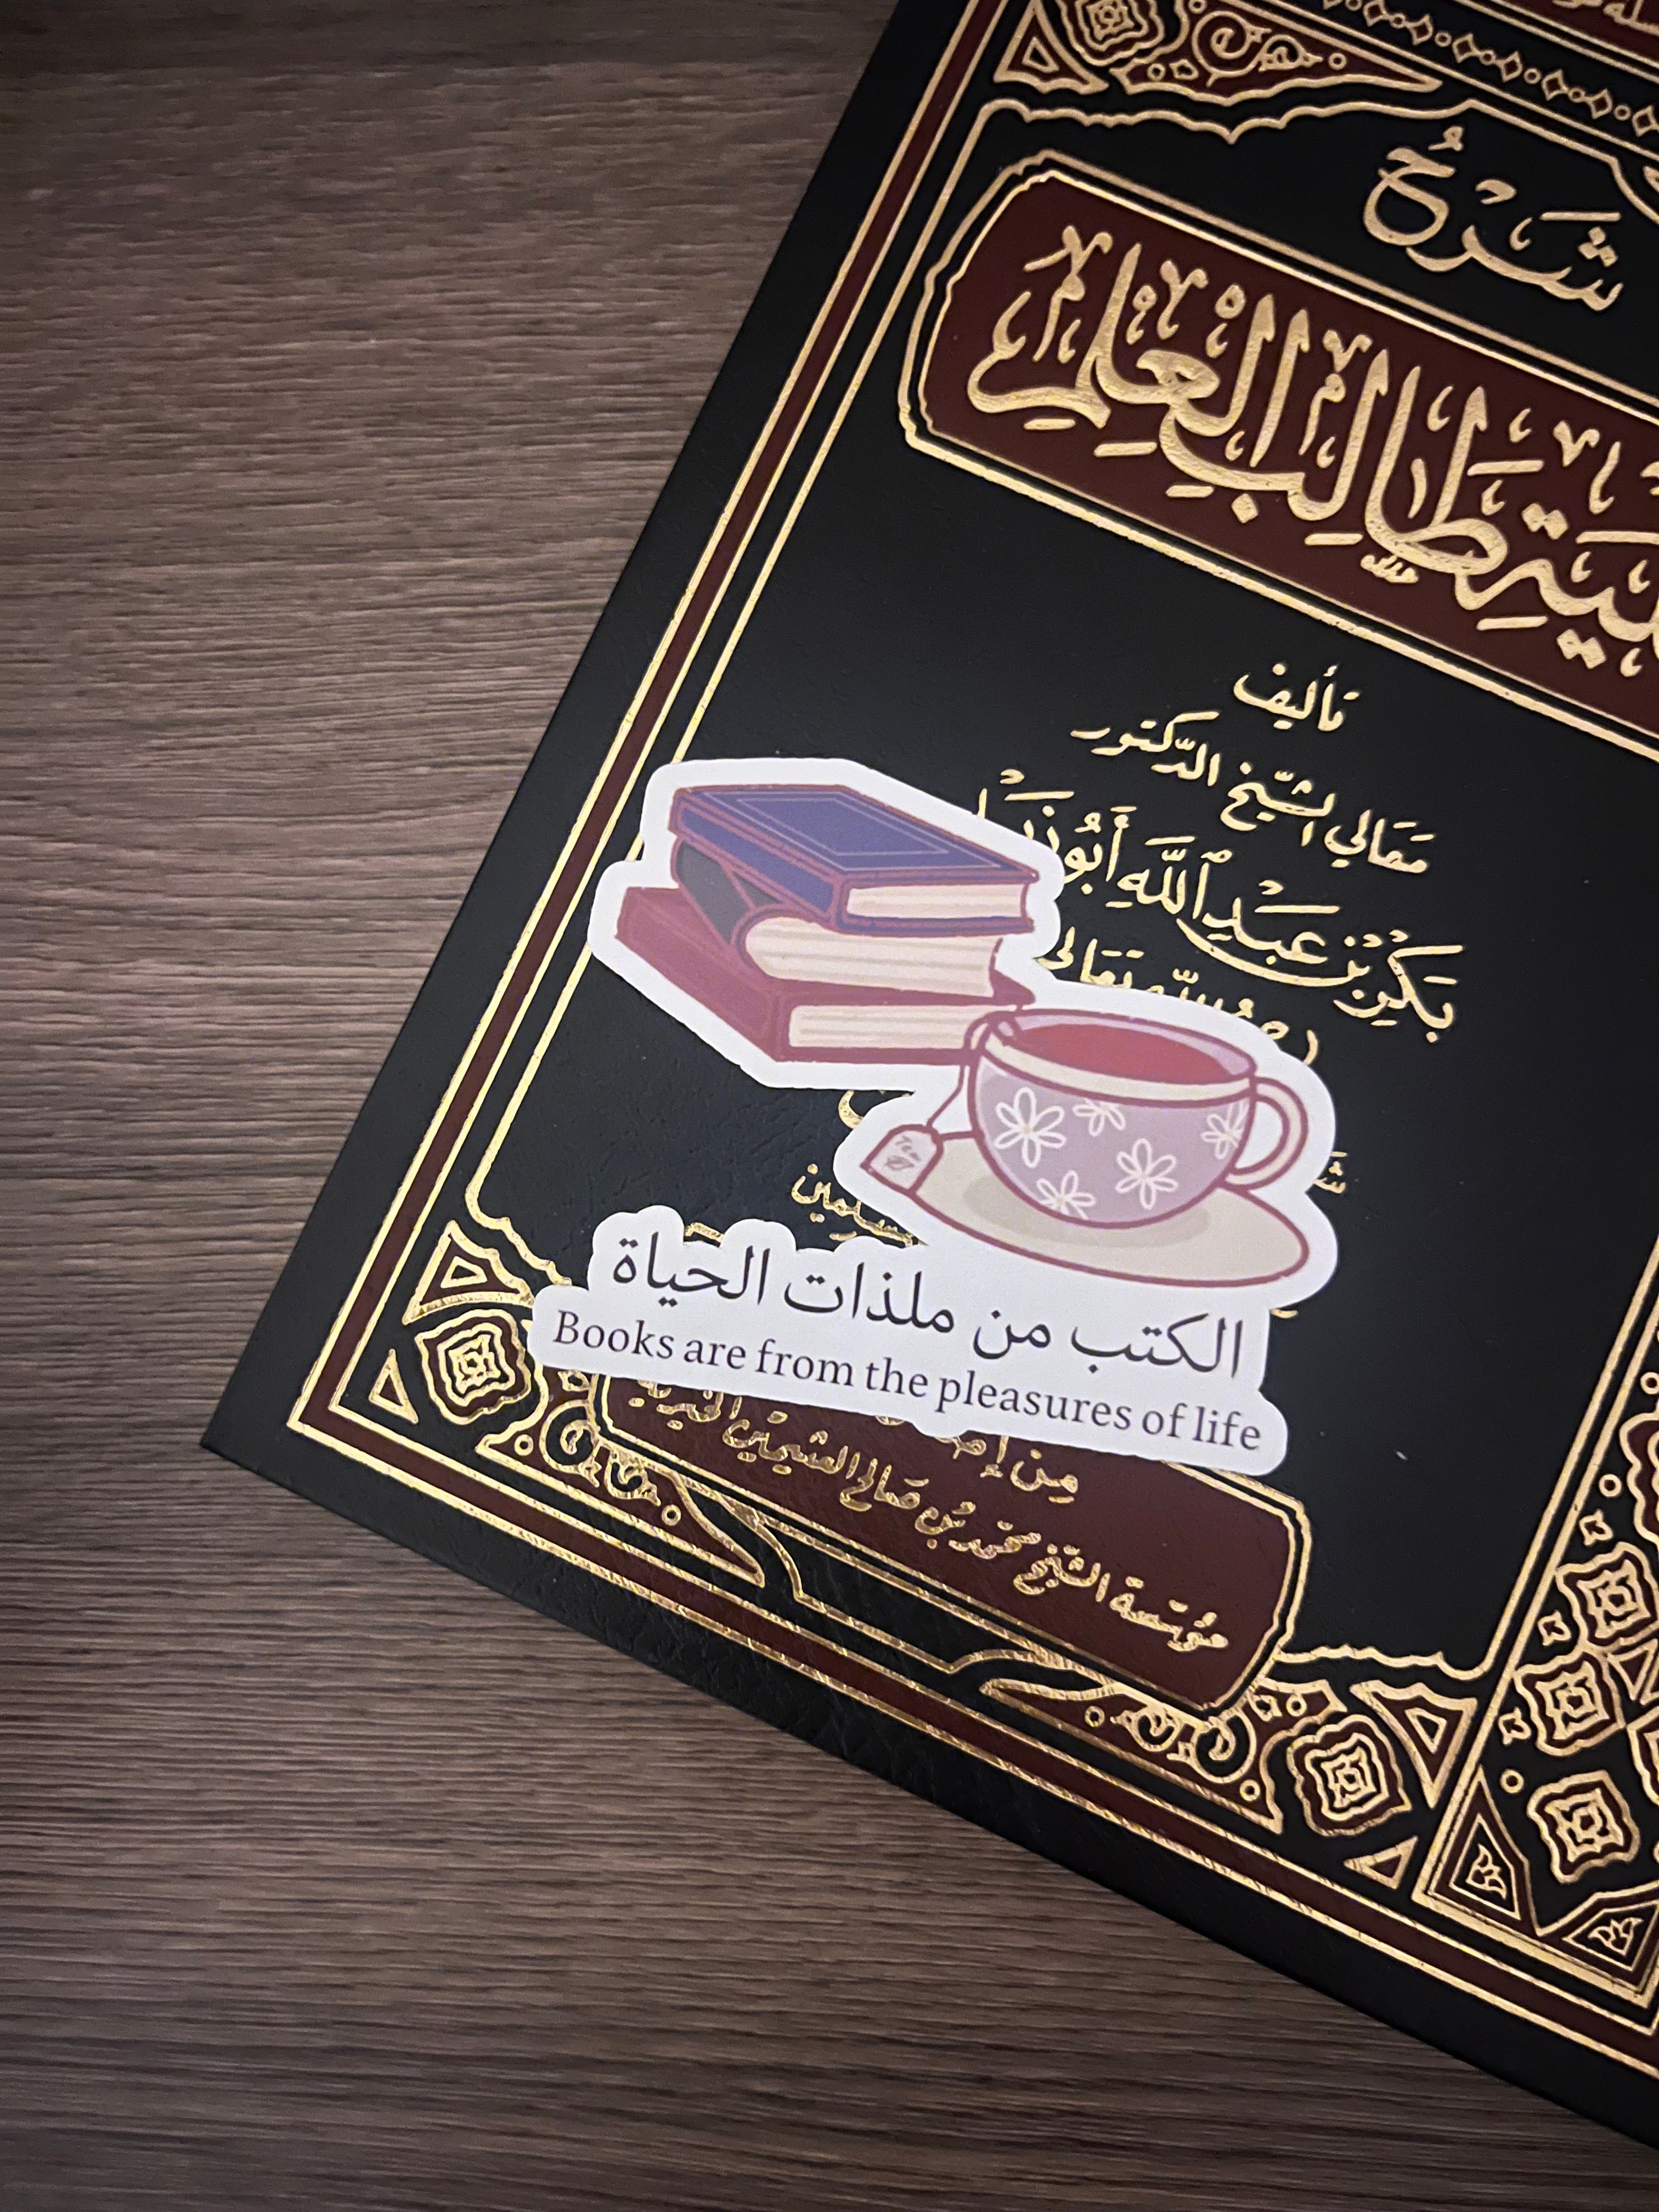 شَرْحُ
طَالِبِ الْعِلْمِ
تأليف
معَالي الشّيخ الدّكتور
بَكْرِ بْنِ عَبْدِ اللَّهِ أَبُو
تعَالى
Tea
الكتب من ملذات الحياة
Books are from the pleasures of life
مِن
مؤسّسة الشّيخ محمّد بن صَالح العثيمين الخيرية